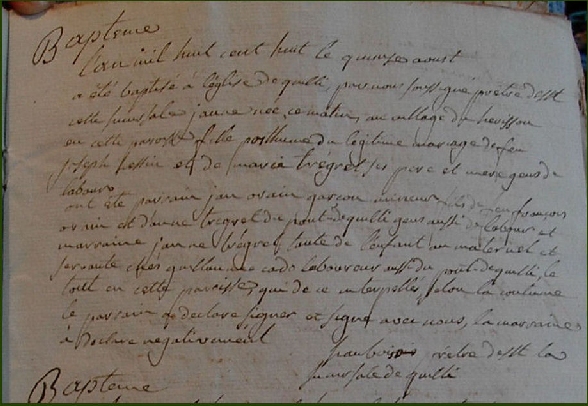 Bapteme
L'an mil huit cent huit le quinze aoust
a été baptisé à l'église de quilli, par nous soussigné prêtre dess.t
cette succursale jeanne née ce matin, au village du herisson
en cette paroisse fille posthume du légitime mariage de feu
joseph et de marie trégret ses pere et mere gens de
labour
ont été parrain jan orain garçon mineur fils de feu françois
orain et d'anne trégret du pont-de quilli gens aussi de labour et
marraine jeanne trégret tante de l'enfant au maternel et
servante chés guillaume laboureur aussi du pont-dequilli, le
tout en cette paroisse, qui de ce interpellés, selon la coutume
le parrain a declaré signer et signe avec nous, la marraine
a declaré négativement
prêtre dess.t la
succursale de quilli
Bapteme